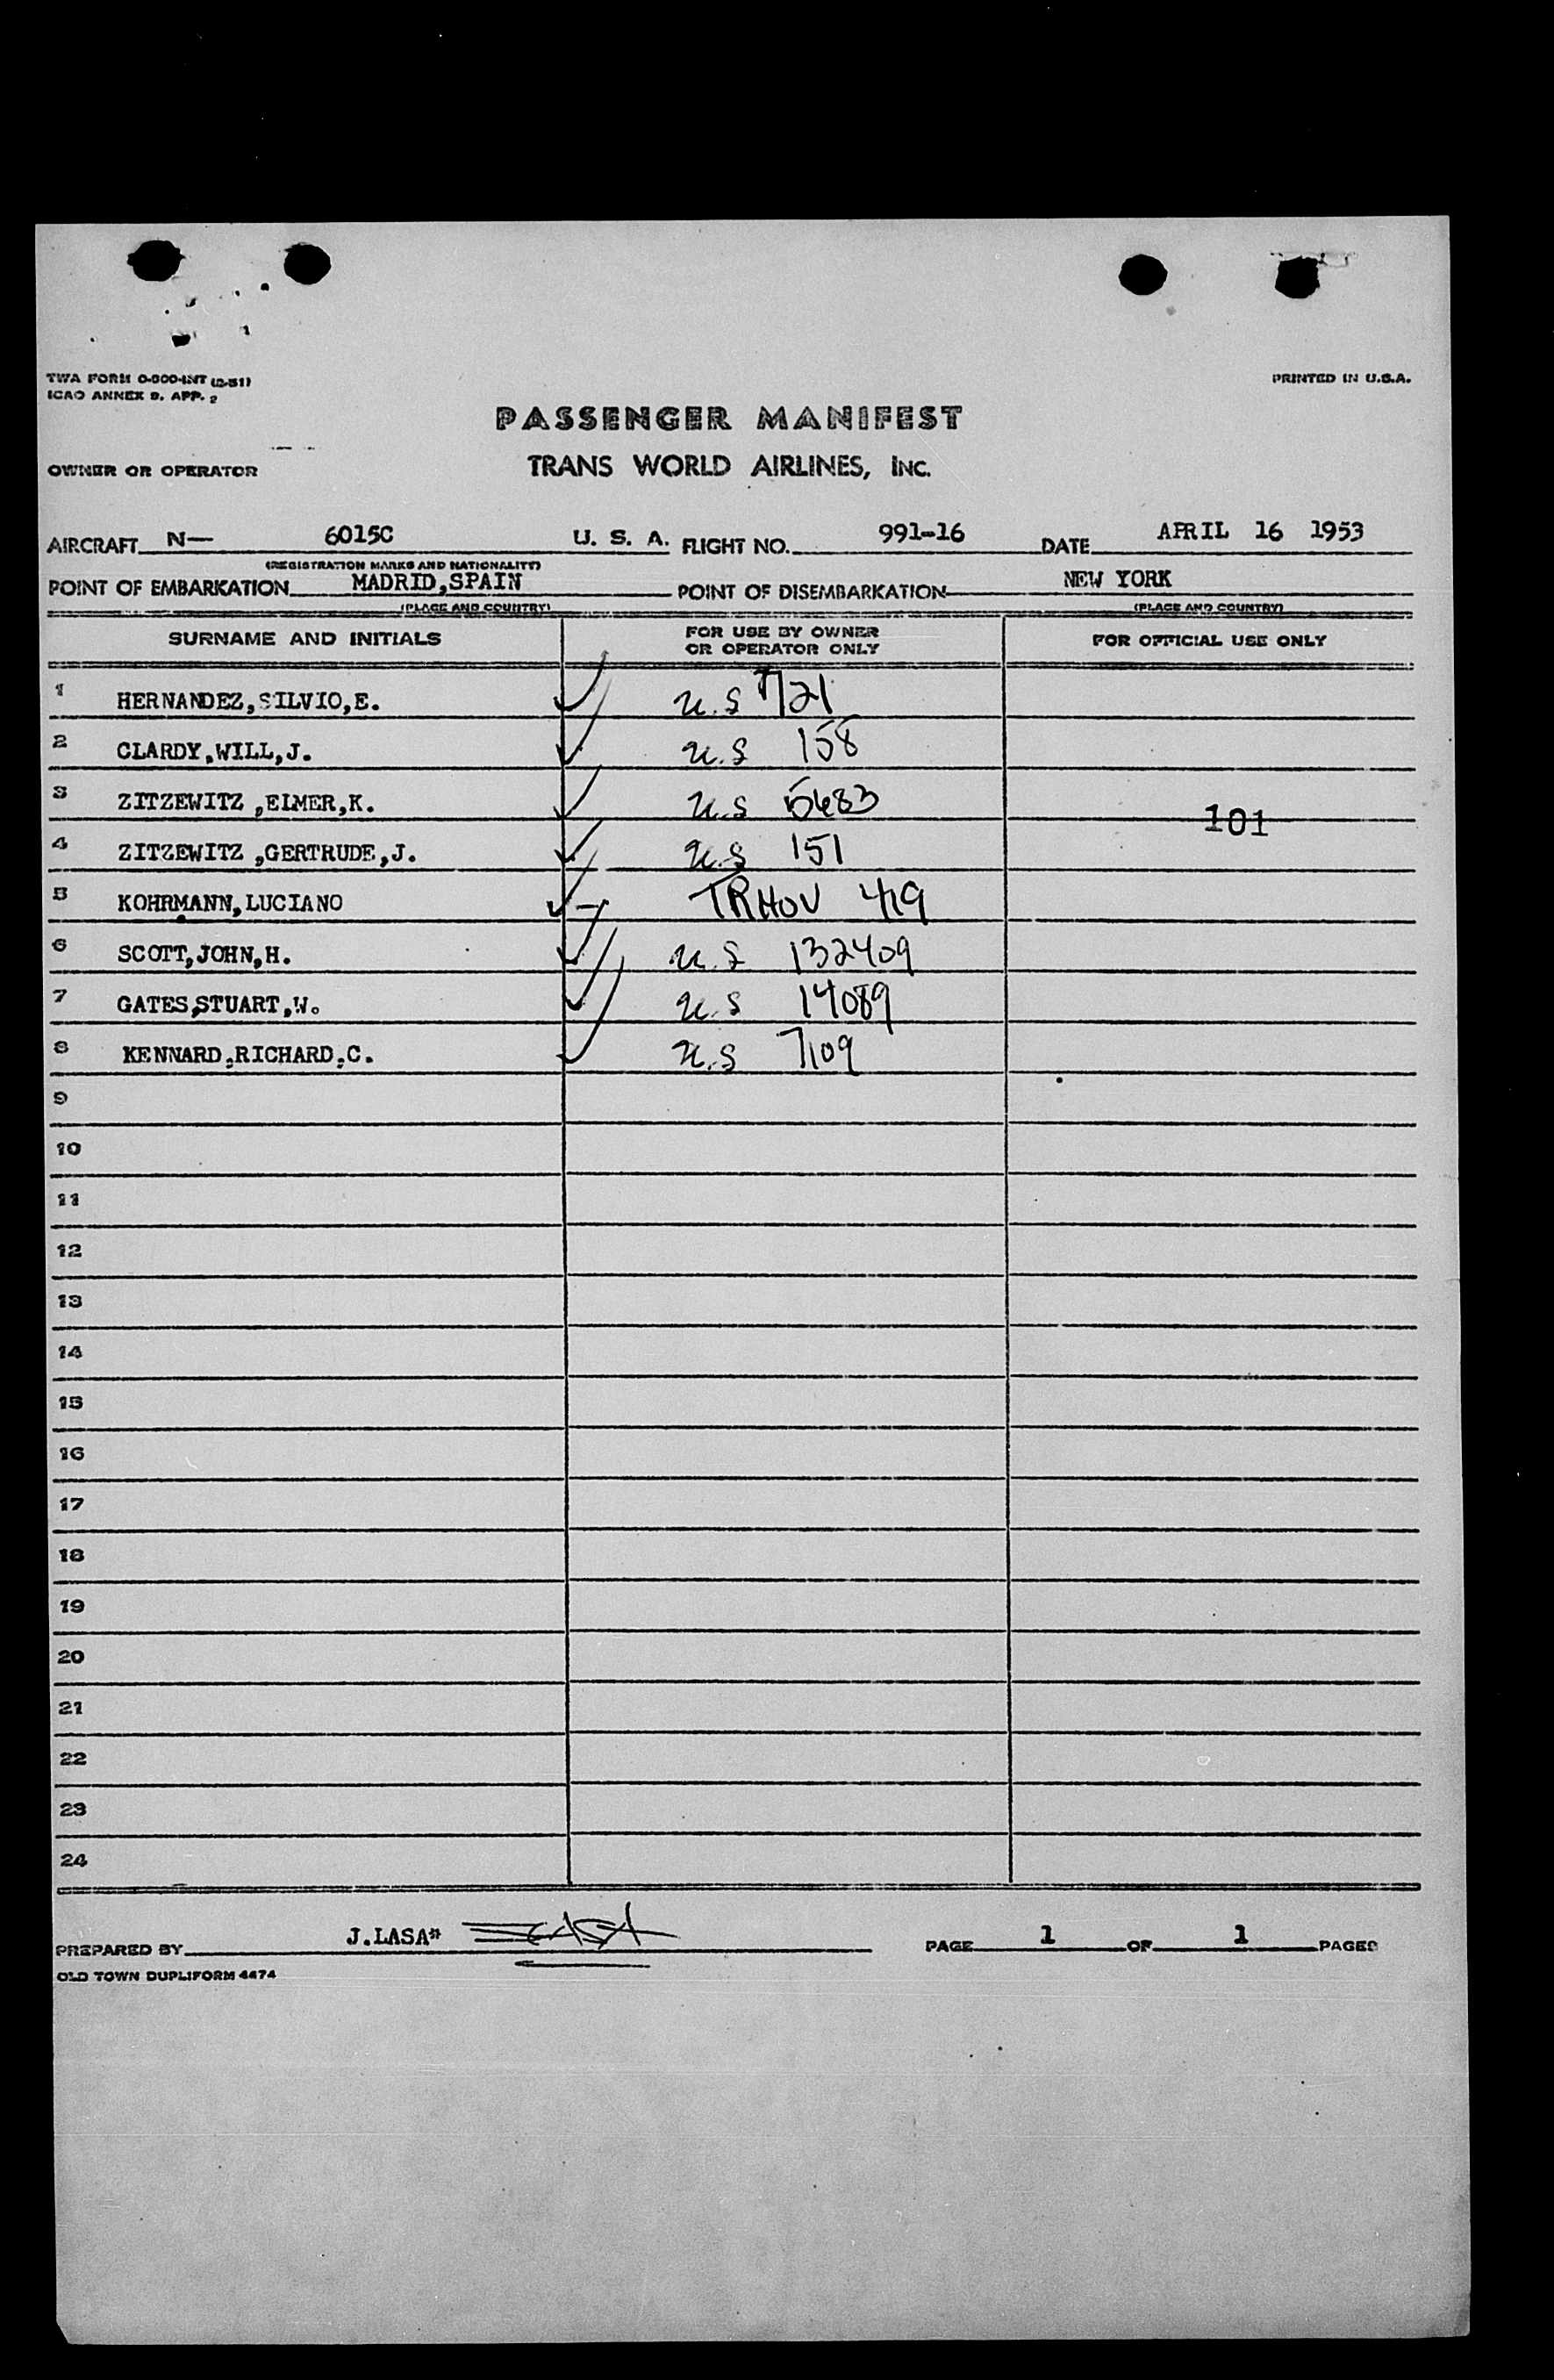 TWA FORM O-000-INT (2-51)
ICAO ANNEX 9. APP. 2
PRINTED IN U.S.A.
PASSENGER MANIFEST
OWNER OR OPERATOR TRANS WORLD AIRLINES, INC.
AIRCRAFT N— 6015C U. S. A. FLIGHT NO. 991-16 DATE APRIL 16 1953
(REGISTRATION MARKS AND NATIONALITY)
POINT OF EMBARKATION MADRID,SPAIN POINT OF DISEMBARKATION NEW YORK
(PLACE AND COUNTRY) (PLACE AND COUNTRY)
SURNAME AND INITIALS FOR USE BY OWNER OR OPERATOR ONLY FOR OFFICIAL USE ONLY
1 HERNANDEZ,SILVIO,E. U.S 721
2 CLARDY,WILL,J. U.S 158
3 ZITZEWITZ ,ELMER,K. U.S 5683
101
4 ZITZEWITZ ,GERTRUDE,J. U.S 151
5 KOHRMANN,LUCIANO 419
6 SCOTT,JOHN,H. U.S 132409
7 GATES,STUART,W. U.S 14089
8 KENNARD,RICHARD,C. U.S 7109
9
10
11
12
13
14
15
16
17
18
19
20
21
22
23
24
PREPARED BY J.LASA" LASA PAGE 1 OF 1 PAGES
OLD TOWN DUPLIFORM 4474